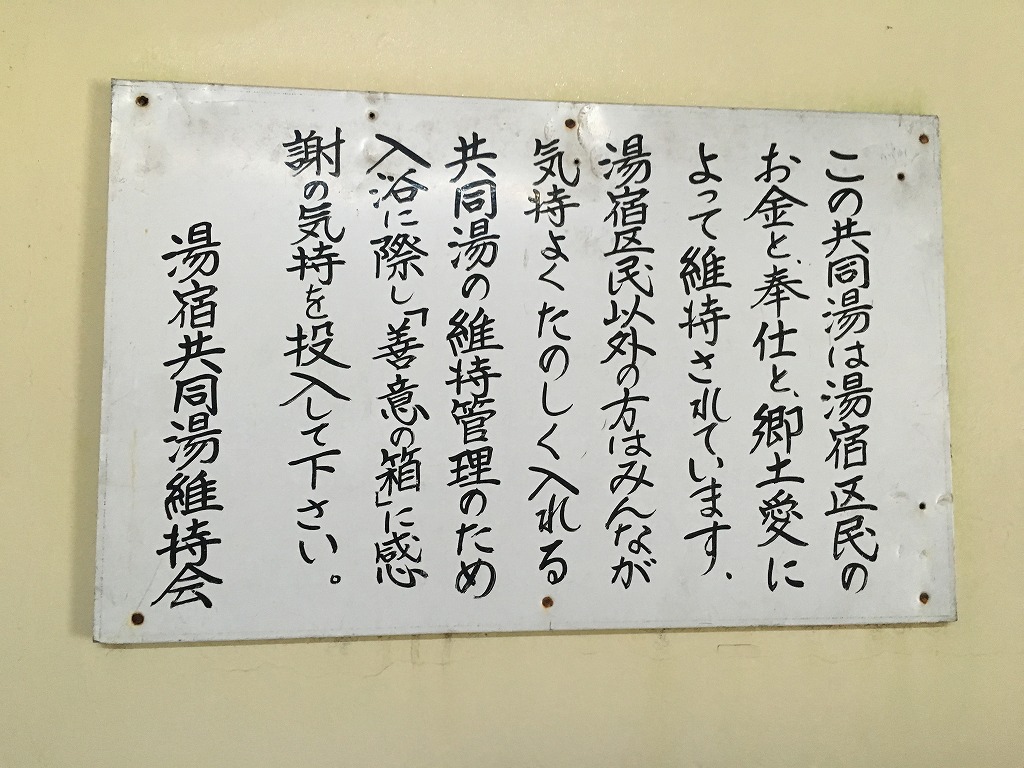 この共同湯は湯宿区民の
お金と、奉仕と、郷土愛に
よって維持されています、
湯宿区民以外の方はみんなが
気持よくたのしく入れる
共同湯の維持管理のため
入浴に際し「善意の箱」に感
謝の気持を投入して下さい。
湯宿共同湯維持会